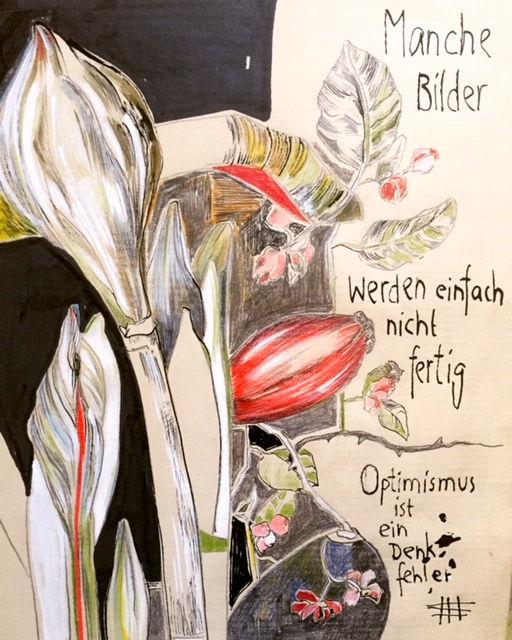 Manche
Bilder
werden einfach
nicht
fertig
Optimismus
ist
ein
Denk
fehler